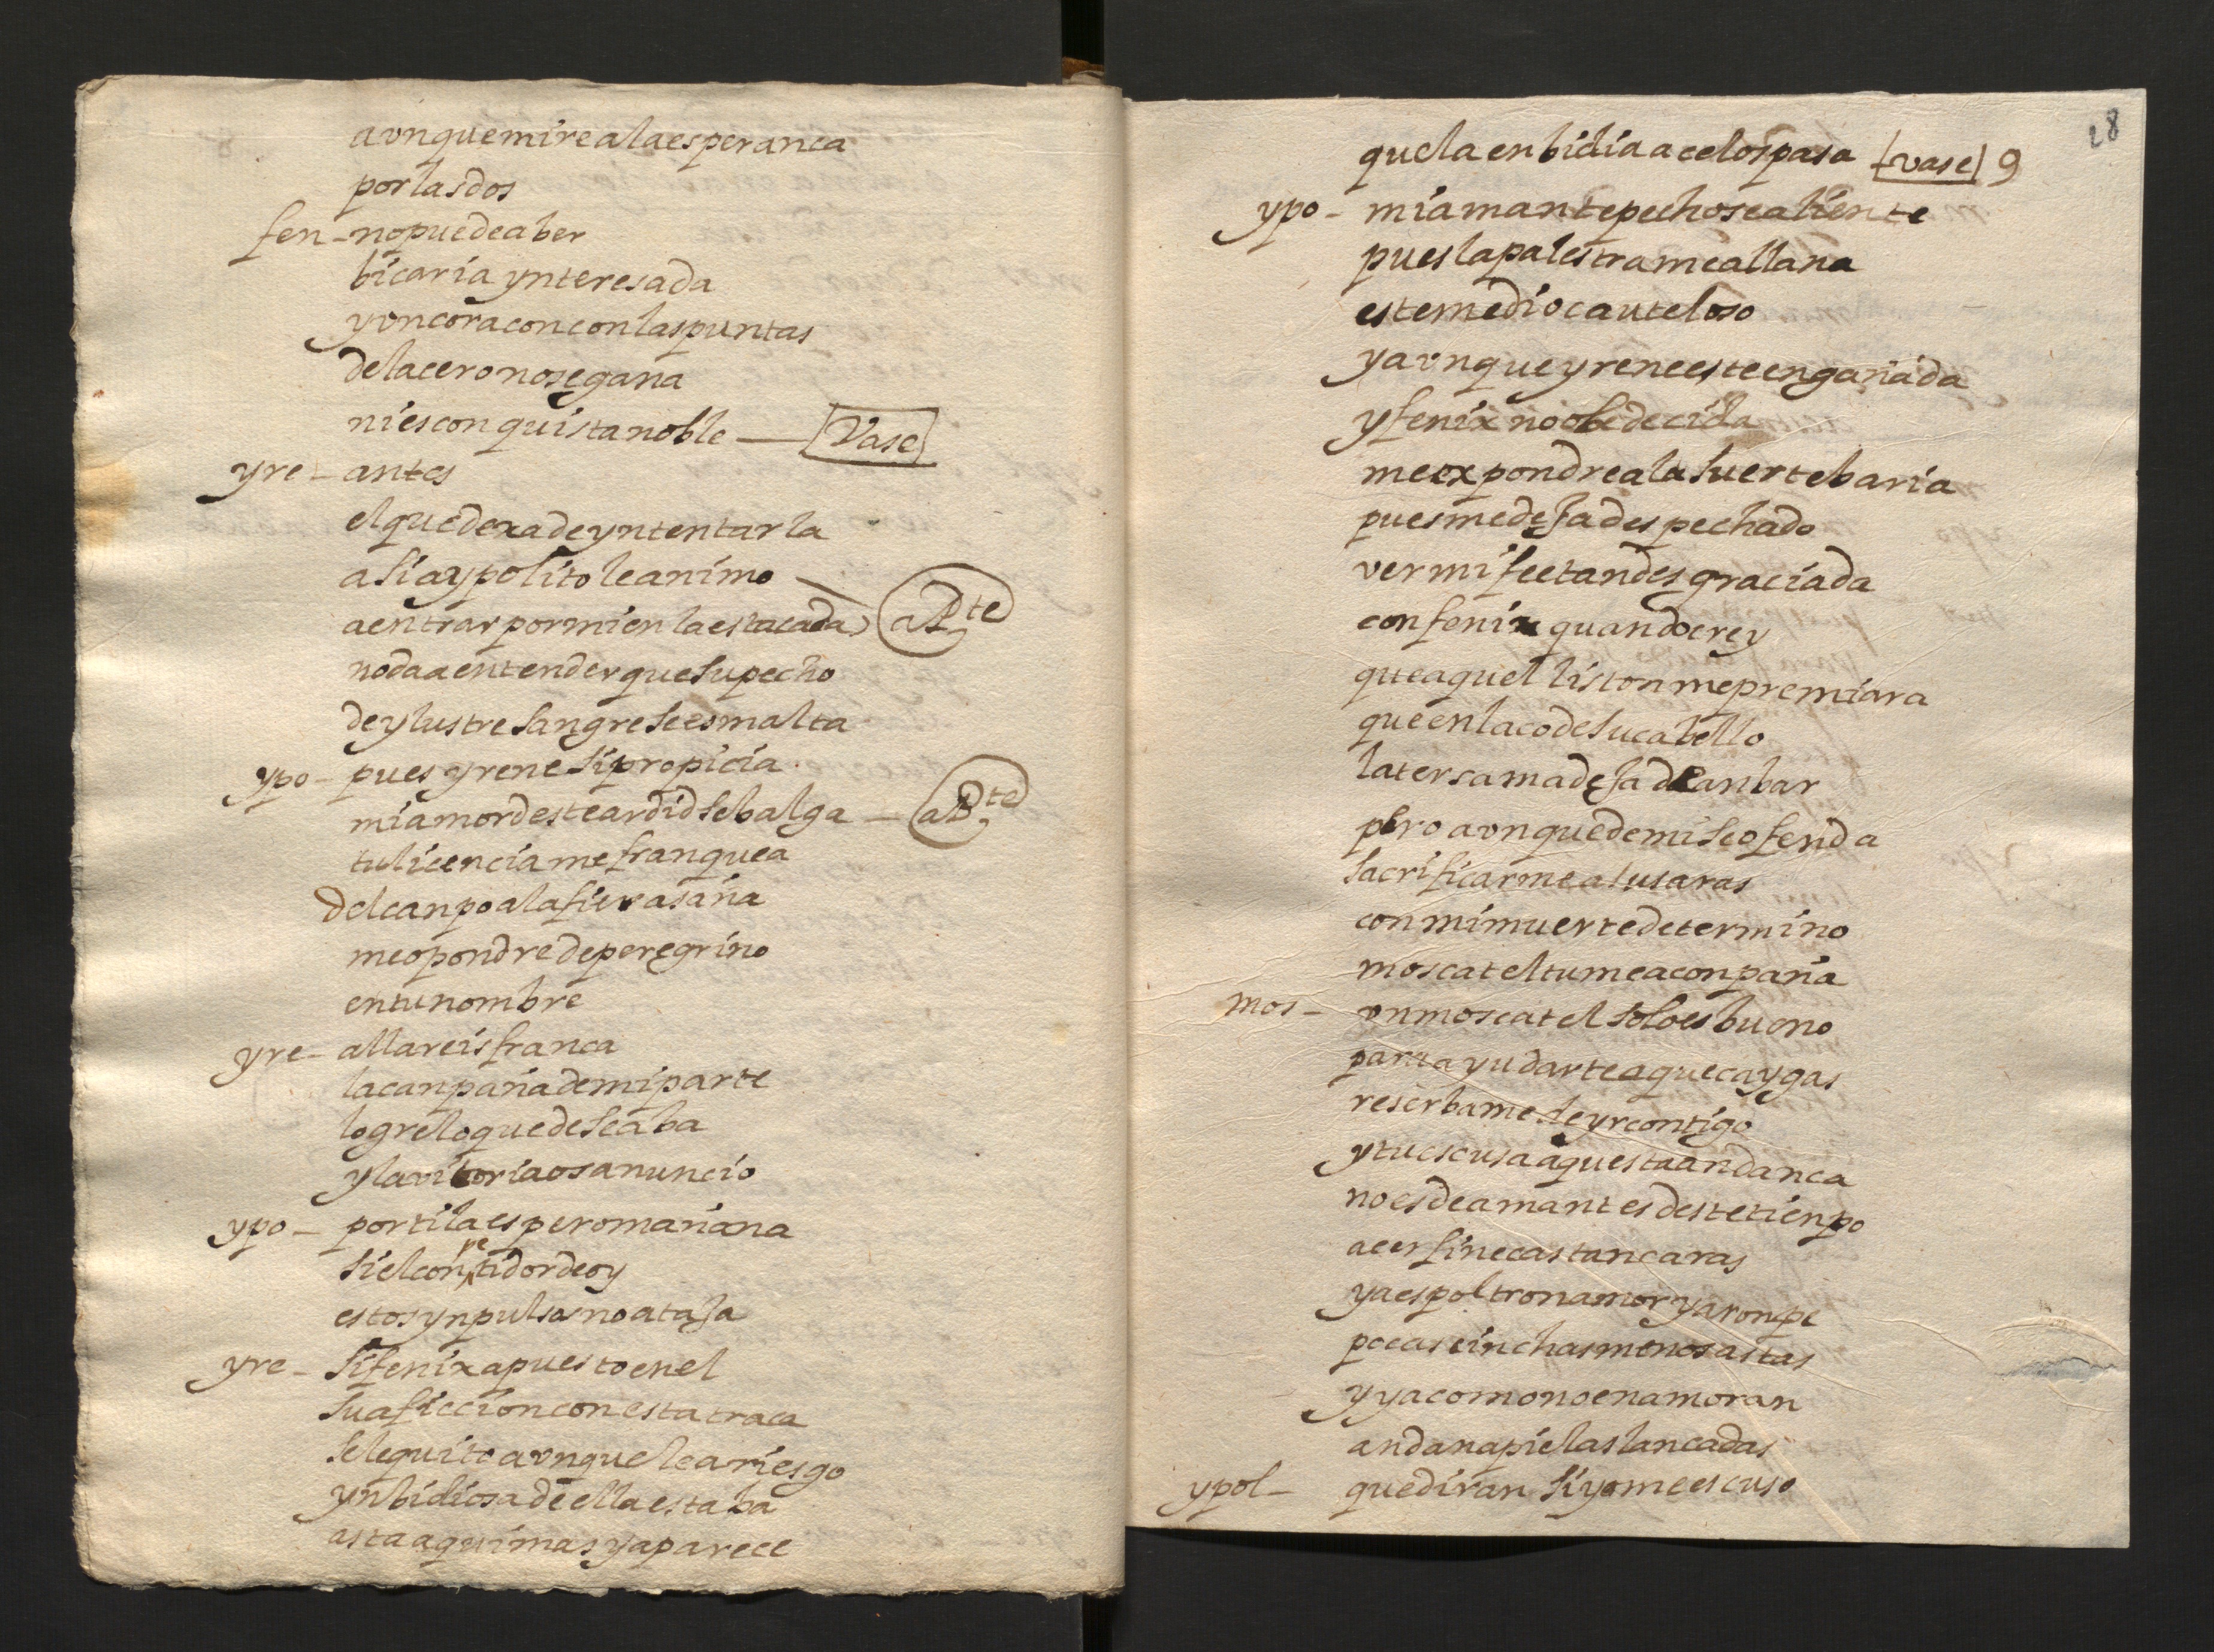 aunque mire a la esperanca
por las dos
fen - no puede aber
bicaria ynteresada
y vn coracon con las puntas
del acero no se gana
ni es conquista noble — Vase
yre - antes
el que dexa de yntentarla
asi a ypolito le animo
a entrar por mi en la estacada aPte
no da a entender que su pecho
de ylustre sangre se esmalta
ypo - pues yrene si propicia
mi amor deste ardid se balga — aPte
tu licencia me franquea
del canpo a la fiera saña
me opondre de peregrino
en tu nombre
yre - allareis franca
la canpaña de mi parte
logre lo que deseaba
y la vitoria os anuncio
ypo - por ti la espero mañana
si el conpetidor de oy
estos ynpulsos no ataja
yre - si fenix a puesto en el
su aficcion con esta traca
se le quito aunque le arriesgo
ynbidiosa de ella estaba
asta aqui mas ya parece
28
que la enbidia a celos pasa vase 9
ypo - mi amante pecho se aliente
pues la palestra me allana
este medio cauteloso
y avnque yrene este engañada
y fenix no obedecida
me expondre a la suerte baria
pues me deja despechado
ver mi fee tan desgraciada
con fenix quando crey
que aquel liston me premiara
que enlaco de su cabello
la tersa madeja de anbar
pero avnque de mi se ofenda
sacrificarme a sus aras
con mi muerte determino
moscatel tu me aconpaña
mos - vn moscatel solo es bueno
para ayudarte a que caygas
reserbame de yr contigo
y tu escusa aquesta andanca
no es de amantes deste tienpo
acer finecas tan caras
ya es poltron amor ya ronpe
pocas cinchas menos astas
y ya como no enamoran
andan a pie las lancadas
ypol - que diran si yo me escuso